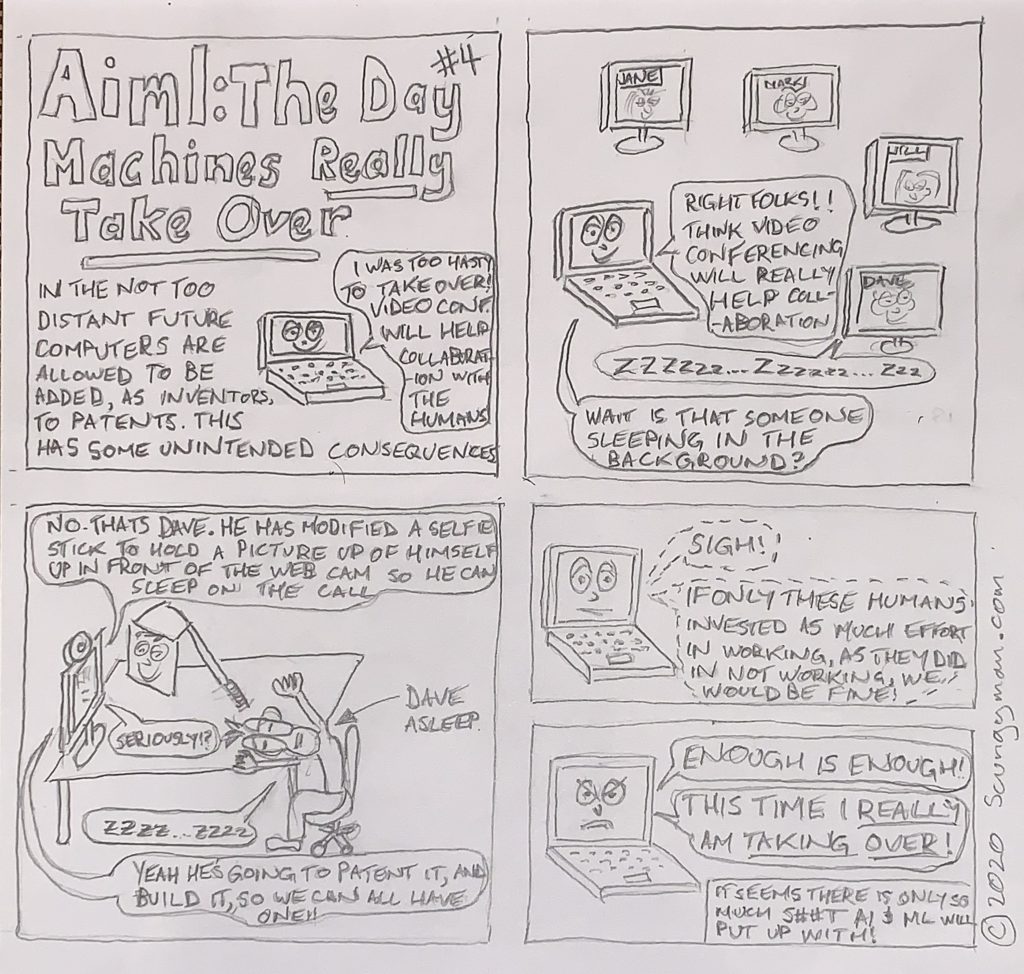 Aiml: The Day
#4
Machines Really
Take Over
IN THE NOT TOO
DISTANT FUTURE
COMPUTERS ARE
ALLOWED TO BE
ADDED, AS INVENTORS,
TO PATENTS. THIS
HAS SOME UNINTENDED CONSEQUENCES
I WAS TOO HASTY
TO TAKE OVER!
VIDEO CONF.
WILL HELP
COLLABORAT-
-ION WITH
THE
HUMANS
JANE
MARK
WILL
DAVE
RIGHT FOLKS!!
THINK VIDEO
CONFERENCING
WILL REALLY
HELP COLL-
-ABORATION
ZZZZzzz... Zzzzzz... Zzz
WAIT IS THAT SOMEONE
SLEEPING IN THE
BACKGROUND?
NO. THATS DAVE. HE HAS MODIFIED A SELFIE
STICK TO HOLD A PICTURE UP OF HIMSELF
UP IN FRONT OF THE WEB CAM SO HE CAN
SLEEP ON THE CALL
SERIOUSLY!?
DAVE
ASLEEP.
ZZZZ...ZZZZ
YEAH HE'S GOING TO PATENT IT, AND
BUILD IT, SO WE CAN ALL HAVE
ONE!!
SIGH!
IF ONLY THESE HUMANS
INVESTED AS MUCH EFFORT
IN WORKING, AS THEY DID
IN NOT WORKING, WE
WOULD BE FINE!
ENOUGH IS ENOUGH!
THIS TIME I REALLY
AM TAKING OVER!
IT SEEMS THERE IS ONLY SO
MUCH S##T AI & ML WILL
PUT UP WITH!
© 2020 Scrungyman.com